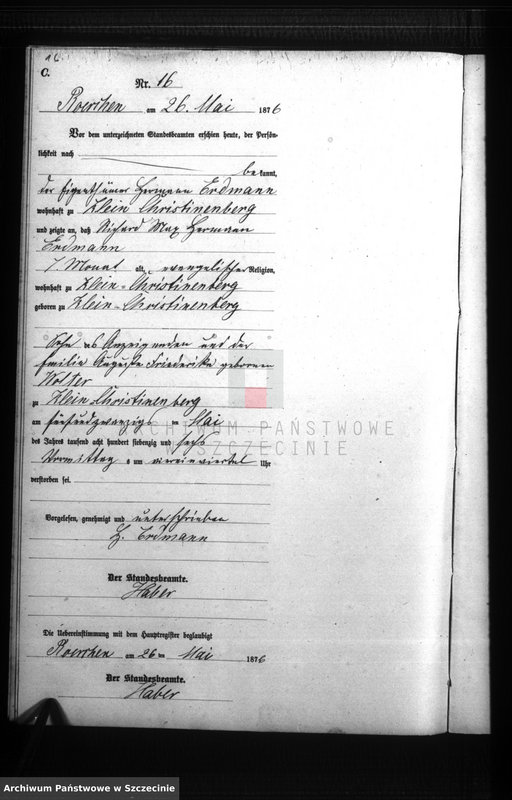 16.
C.
Nr. 16
Roerchen am 26. Mai 1876
Vor dem unterzeichneten Standesbeamten erschien heute, der Persön-
lichkeit nach
bekannt,
der Eigenthümer Hermann Erdmann
wohnhaft zu Klein Christinenberg
und zeigte an, daß Richard Max Hermann
Erdmann
7 Monat alt, evangelischer Religion,
wohnhaft zu Klein-Christinenberg
geboren zu Klein-Christinenberg
Sohn des Anzeigenden und der
Emilie Auguste Friederike geborenen
Wolter
zu Klein Christinenberg
am fünfundzwanzigsten Mai
des Jahres tausend acht hundert siebenzig und sechs
Vormittag um viereinviertel Uhr
verstorben sei.
Vorgelesen, genehmigt und unterschrieben
H. Erdmann
Der Standesbeamte.
Haber
Die Uebereinstimmung mit dem Hauptregister beglaubigt
Roerchen am 26 ten Mai 1876
Der Standesbeamte.
Haber
ARCHIWUM PAŃSTWOWE
W SZCZECINIE
Archiwum Państwowe w Szczecinie